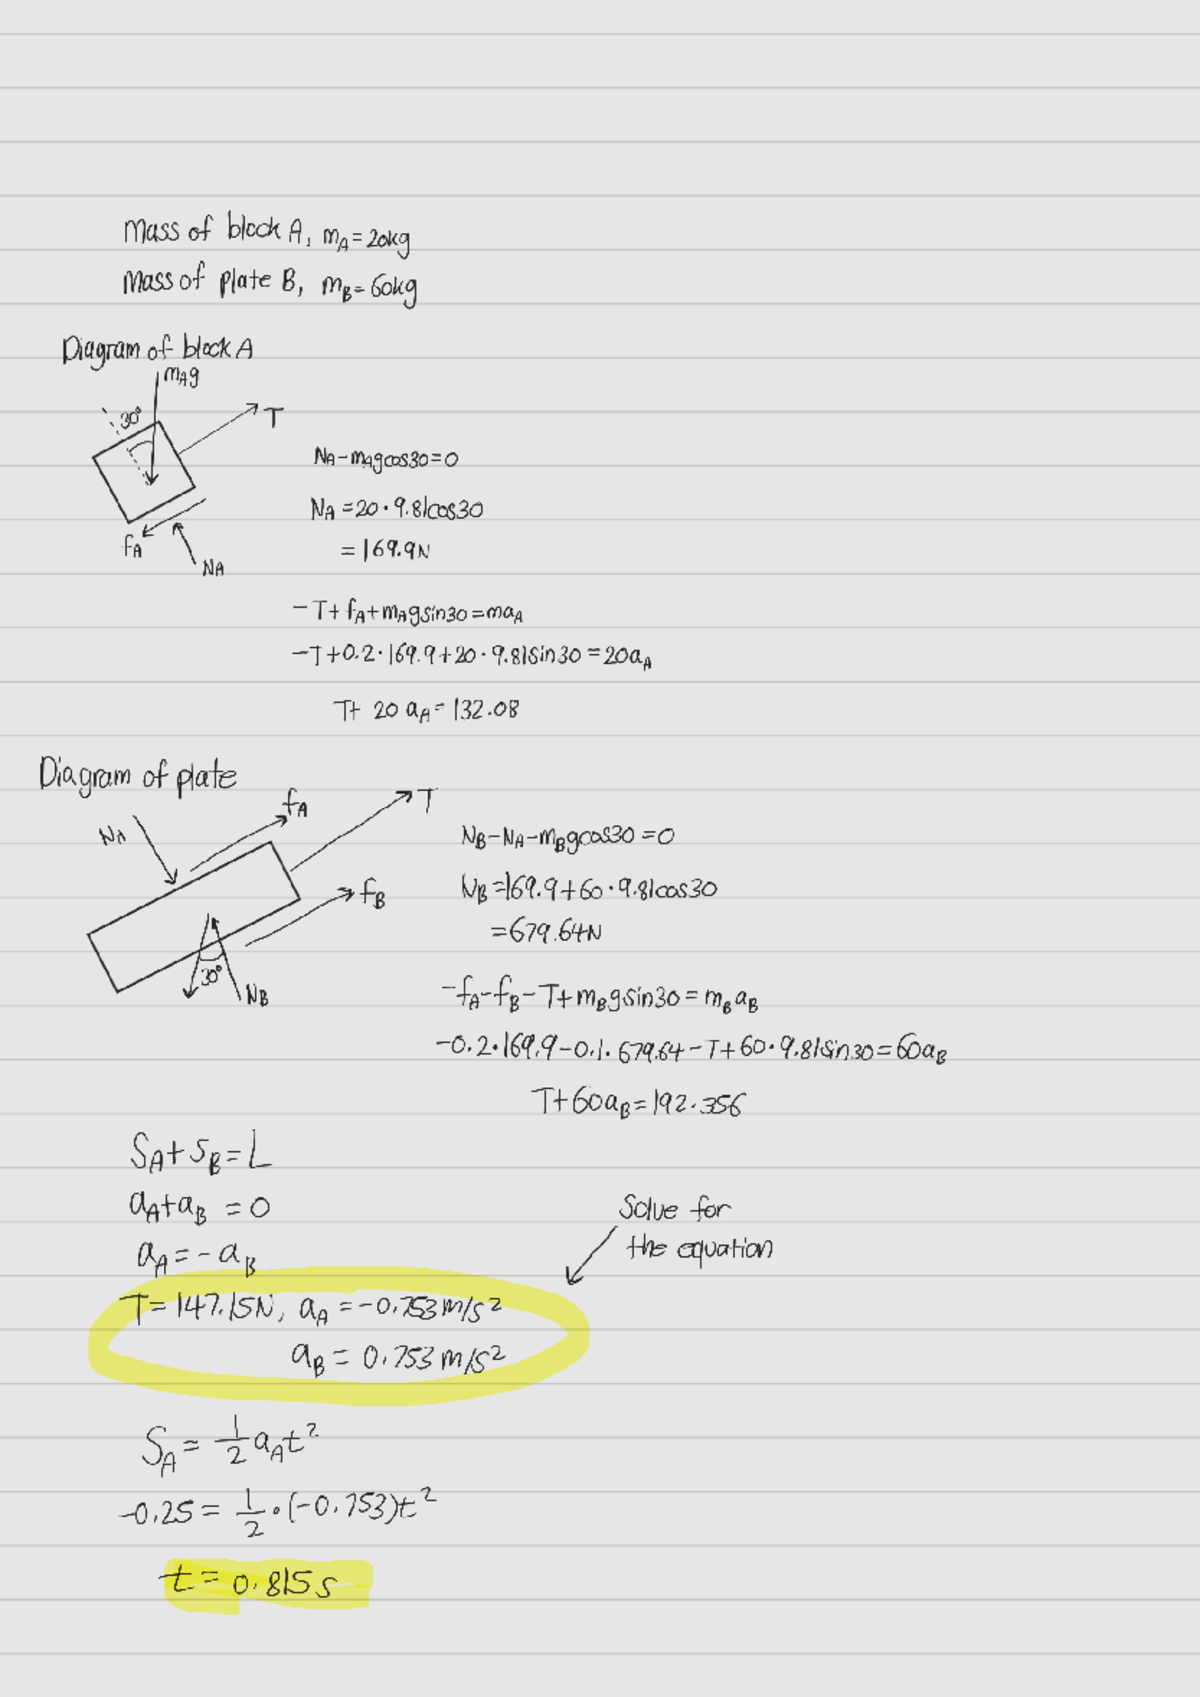 Mass of block A, mA=20kg
Mass of plate B, mB=60kg
Diagram of block A
mAg
30°
T
fA
NA
NA-mAgcos30=0
NA=20·9.81cos30
=169.9N
-T+fA+mAgsin30=maA
-T+0.2·169.9+20·9.81sin30=20aA
T+ 20 aA=132.08
Diagram of plate
NA
fA
T
fB
30°
NB
NB-NA-mBgcos30=0
NB=169.9+60·9.81cos30
=679.64N
-fA-fB-T+mBgsin30=mBaB
-0.2·169.9-0.1·679.64-T+60·9.81sin30=60aB
T+60aB=192.356
SA+SB=L
aA+aB=0
aA=-aB
Solve for
the equation
T=147.15N, aA=-0.753m/s²
aB=0.753m/s²
SA=1/2 aAt²
-0.25=1/2·(-0.753)t²
t=0.815s